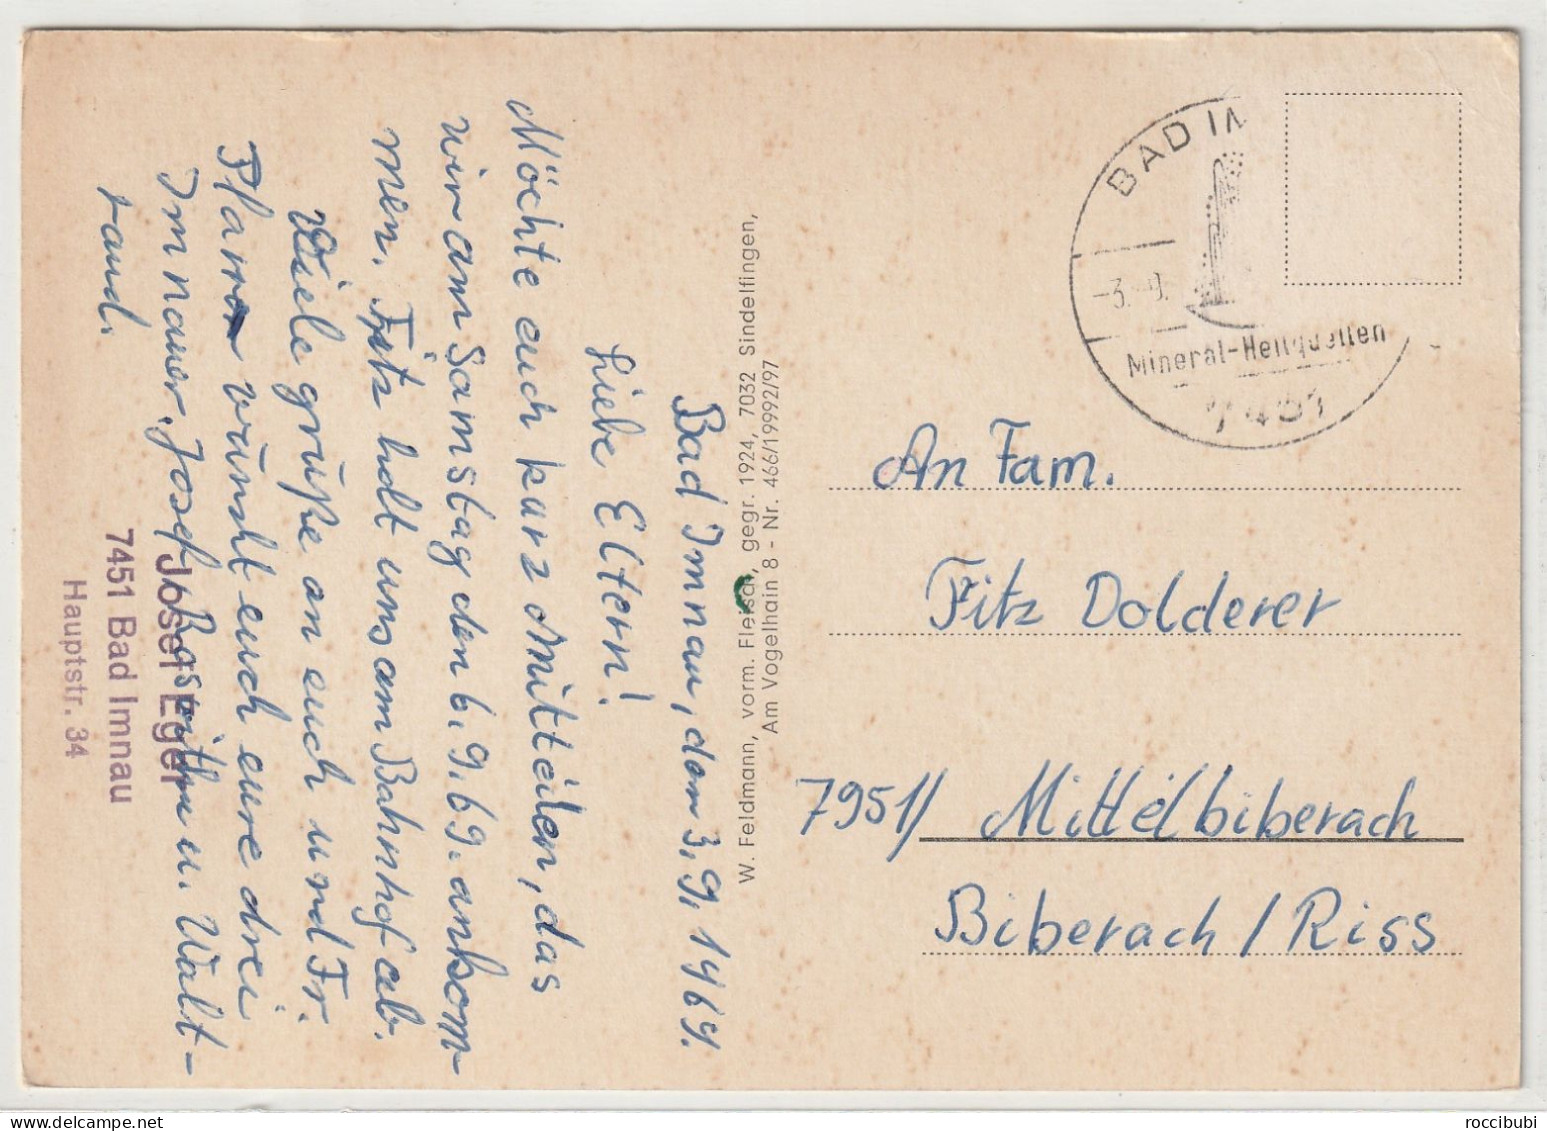 Bad Imnau, den 3.9.1969.
Liebe Eltern!
Möchte euch kurz Mitteilen, das
wir am Samstag den 6.9.69. ankom-
men. Fitz holt uns am Bahnhof ab.
Viele grüße an euch und Fr.
Pfarr wünscht euch eure drei
Imnauer. Josef, Roswitha u. Walt-
raud.
Josef Eger
7451 Bad Imnau
Hauptstr. 34
W. Feldmann, vorm. Fleisch, gegr. 1924, 7032 Sindelfingen,
Am Vogelhain 8 - Nr. 466/19992/97
BAD IM
-3. 9.
Mineral-Heilquellen
7451
An Fam.
Fitz Dolderer
7951/ Mittelbiberach
Biberach/Riss
roccibubi
www.delcampe.net